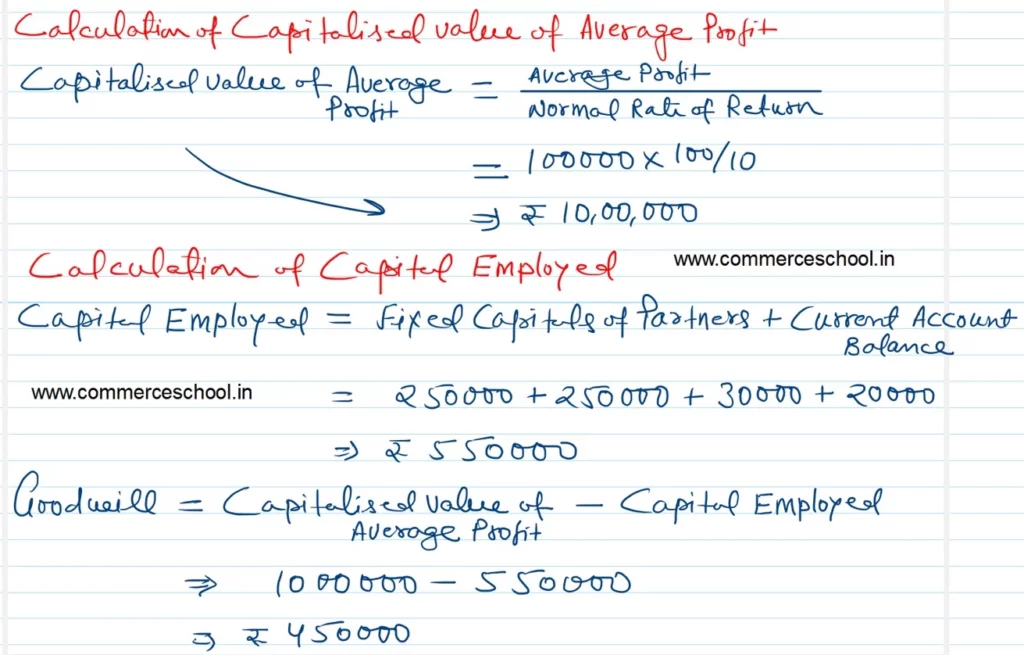 Calculation of Capitalised value of Average Profit
Capitalised value of Average Profit = Average Profit / Normal Rate of Return
= 100000 × 100/10
⇒ ₹ 10,00,000
Calculation of Capital Employed
www.commerceschool.in
Capital Employed = Fixed Capitals of Partners + Current Account Balance
www.commerceschool.in
= 250000 + 250000 + 30000 + 20000
⇒ ₹ 550000
Goodwill = Capitalised value of Average Profit − Capital Employed
⇒ 1000000 − 550000
⇒ ₹ 450000